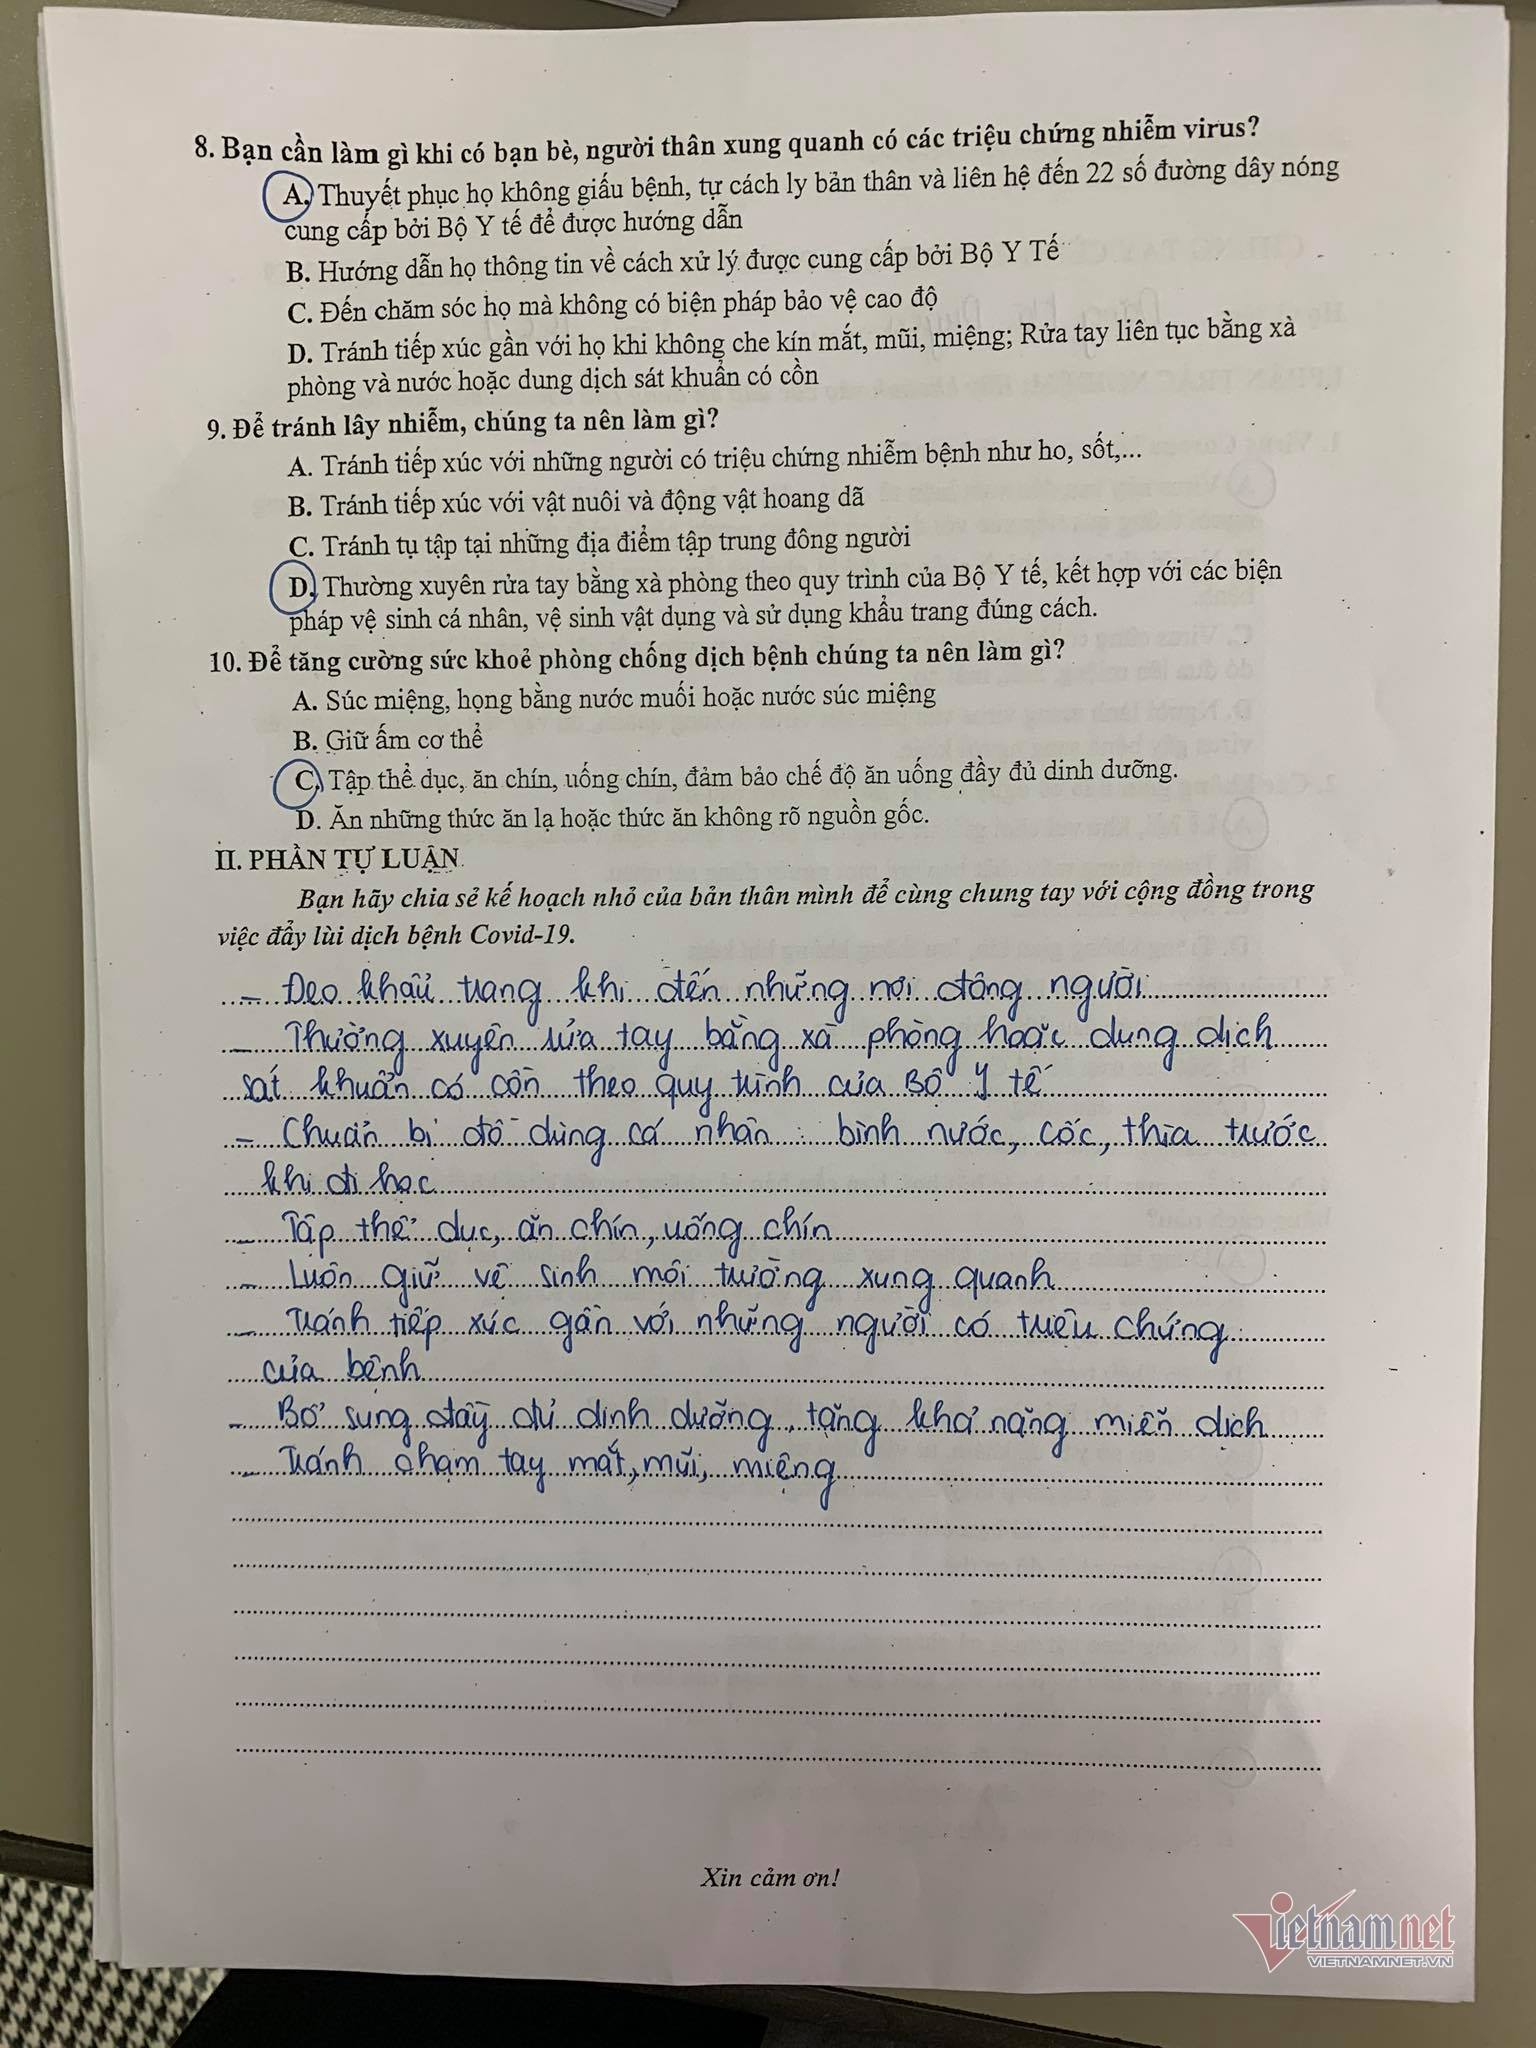 8. Bạn cần làm gì khi có bạn bè, người thân xung quanh có các triệu chứng nhiễm virus?
A. Thuyết phục họ không giấu bệnh, tự cách ly bản thân và liên hệ đến 22 số đường dây nóng
cung cấp bởi Bộ Y tế để được hướng dẫn
B. Hướng dẫn họ thông tin về cách xử lý được cung cấp bởi Bộ Y Tế
C. Đến chăm sóc họ mà không có biện pháp bảo vệ cao độ
D. Tránh tiếp xúc gần với họ khi không che kín mắt, mũi, miệng; Rửa tay liên tục bằng xà
phòng và nước hoặc dung dịch sát khuẩn có cồn
9. Để tránh lây nhiễm, chúng ta nên làm gì?
A. Tránh tiếp xúc với những người có triệu chứng nhiễm bệnh như ho, sốt,...
B. Tránh tiếp xúc với vật nuôi và động vật hoang dã
C. Tránh tụ tập tại những địa điểm tập trung đông người
D. Thường xuyên rửa tay bằng xà phòng theo quy trình của Bộ Y tế, kết hợp với các biện
pháp vệ sinh cá nhân, vệ sinh vật dụng và sử dụng khẩu trang đúng cách.
10. Để tăng cường sức khoẻ phòng chống dịch bệnh chúng ta nên làm gì?
A. Súc miệng, họng bằng nước muối hoặc nước súc miệng
B. Giữ ấm cơ thể
C. Tập thể dục, ăn chín, uống chín, đảm bảo chế độ ăn uống đầy đủ dinh dưỡng.
D. Ăn những thức ăn lạ hoặc thức ăn không rõ nguồn gốc.
II. PHẦN TỰ LUẬN
Bạn hãy chia sẻ kế hoạch nhỏ của bản thân mình để cùng chung tay với cộng đồng trong
việc đẩy lùi dịch bệnh Covid-19.
- Đeo khẩu trang khi đến những nơi đông người
- Thường xuyên rửa tay bằng xà phòng hoặc dung dịch
sát khuẩn có cồn theo quy trình của Bộ Y tế
- Chuẩn bị đồ dùng cá nhân : bình nước, cốc, thìa trước
khi đi học
- Tập thể dục, ăn chín, uống chín
- Luôn giữ vệ sinh môi trường xung quanh
- Tránh tiếp xúc gần với những người có triệu chứng
của bệnh
- Bổ sung đầy đủ dinh dưỡng, tăng khả năng miễn dịch
- Tránh chạm tay mắt, mũi, miệng
Xin cảm ơn!
Vietnamnet
VIETNAMNET.VN